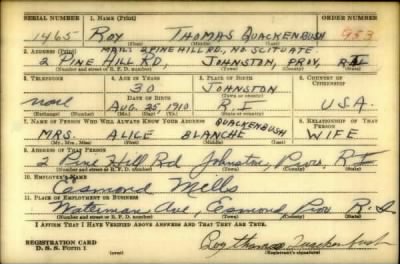 SERIAL NUMBER 1. NAME (Print) ORDER NUMBER
1465 ROY THOMAS QUACKENBUSH 953
(First) (Middle) (Last)
2. ADDRESS (Print) MAIL: 2 PINE HILL RD, NO. SCITUATE
2 PINE HILL RD, JOHNSTON, PROV, R.I.
(Number and street or R. F. D. number) (Town) (County) (State)
3. TELEPHONE 4. AGE IN YEARS 5. PLACE OF BIRTH 6. COUNTRY OF CITIZENSHIP
30 JOHNSTON
none DATE OF BIRTH (Town or county)
AUG. 25, 1910 R.I U.S.A.
(Exchange) (Number) (Mo.) (Day) (Yr.) (State or country)
7. NAME OF PERSON WHO WILL ALWAYS KNOW YOUR ADDRESS 8. RELATIONSHIP OF THAT PERSON
QUACKENBUSH
MRS. ALICE BLANCHE WIFE
(Mr., Mrs., Miss) (First) (Middle) (Last)
9. ADDRESS OF THAT PERSON
2 Pine Hill Rd Johnston, Prov, R I
(Number and street or R. F. D. number) (Town) (County) (State)
10. EMPLOYER'S NAME
Esmond Mills
11. PLACE OF EMPLOYMENT OR BUSINESS
Waterman Ave, Esmond Prov R. I
(Number and street or R. F. D. number) (Town) (County) (State)
I AFFIRM THAT I HAVE VERIFIED ABOVE ANSWERS AND THAT THEY ARE TRUE.
REGISTRATION CARD
D. S. S. Form 1 (over) Roy Thomas Quackenbush
(Registrant's signature)